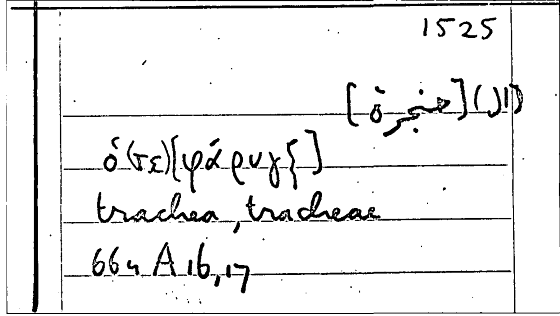 1525
(ال)[حنجرة]
ὁ (τε)[φάρυγξ]
trachea, tracheae
664 A 16, 17